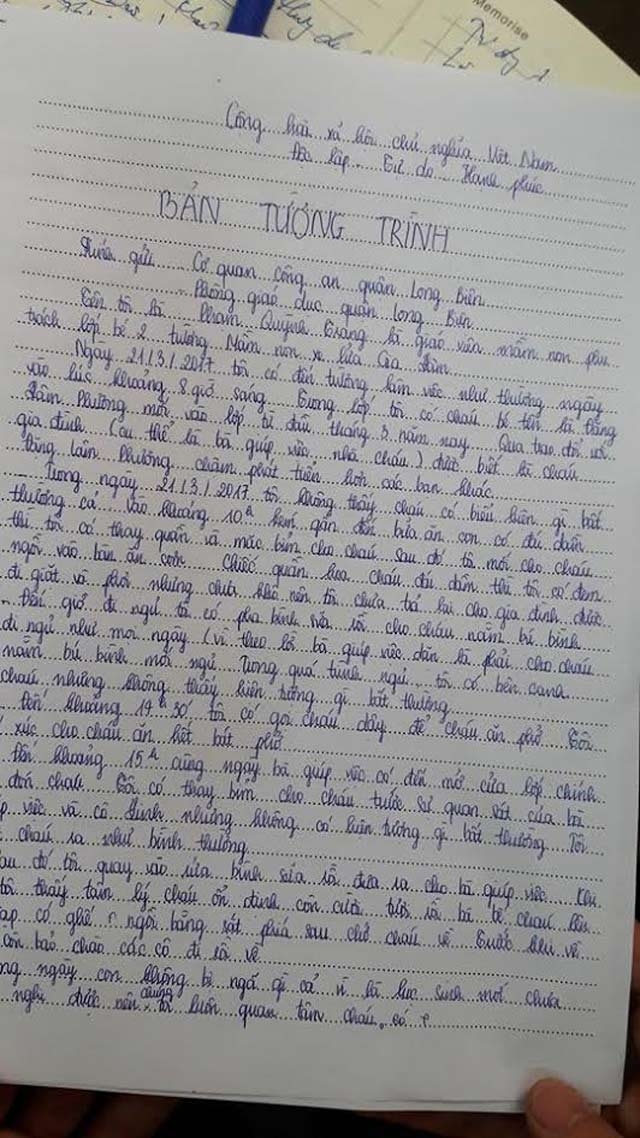 Memorise
Cộng hoà xã hội chủ nghĩa Việt Nam
Độc lập - Tự do - Hạnh phúc
BẢN TƯỜNG TRÌNH
Kính gửi Cơ quan công an quận Long Biên
Phòng giáo dục quận Long Biên
Tên tôi là Phạm Quỳnh Trang là giáo viên mầm non phụ
trách lớp bé 2 trường Mầm non xe lửa Gia Lâm
Ngày 21/3/2017 tôi có đến trường làm việc như thường ngày
vào lúc khoảng 8 giờ sáng Trong lớp tôi có cháu bé tên là Đặng
Lâm Phương mới vào lớp từ đầu tháng 3 năm nay Qua trao đổi với
gia đình (cụ thể là bà giúp việc nhà cháu) được biết là cháu
Đặng Lâm Phương chậm phát triển hơn các bạn khác
Trong ngày 21/3/2017 tôi không thấy cháu có biểu hiện gì bất
thường cả Vào khoảng 10h hơn gần đến bữa ăn con có đái dầm
thì tôi có thay quần và mặc bỉm cho cháu sau đó tôi mới cho cháu
ngồi vào bàn ăn cơm Chiếc quần hoa cháu đái dầm thì tôi có đem
đi giặt và phơi nhưng chưa khô nên tôi chưa trả lại cho gia đình được
Đến giờ đi ngủ tôi có pha bình sữa rồi cho cháu nằm bú bình
đi ngủ như mọi ngày (vì theo lời bà giúp việc dặn là phải cho cháu
nằm bú bình mới ngủ Trong quá trình ngủ tôi có bên cạnh
cháu nhưng không thấy hiện tượng gì bất thường
Đến khoảng 14h30' tôi có gọi cháu dậy để cháu ăn phở Tôi
xúc cho cháu ăn hết bát phở
Đến khoảng 15h cùng ngày bà giúp việc có đến mở cửa lớp chính
đón cháu Tôi có thay bỉm cho cháu trước sự quan sát của bà
p việc và cô Trinh nhưng không có hiện tượng gì bất thường Tôi
cháu ra như bình thường
au đó tôi quay vào rửa bình sữa rồi đưa ra cho bà giúp việc Khi
tôi thấy tâm lý cháu ổn định còn cười tươi rồi bà bế cháu lên
đạp có ghế ngồi bằng sắt phía sau chở cháu về Trước khi về
còn bảo chào các cô đi rồi về
ng ngày con không bị ngã gì cả vì là học sinh mới chưa
nghi được nên chúng tôi luôn quan tâm cháu, có